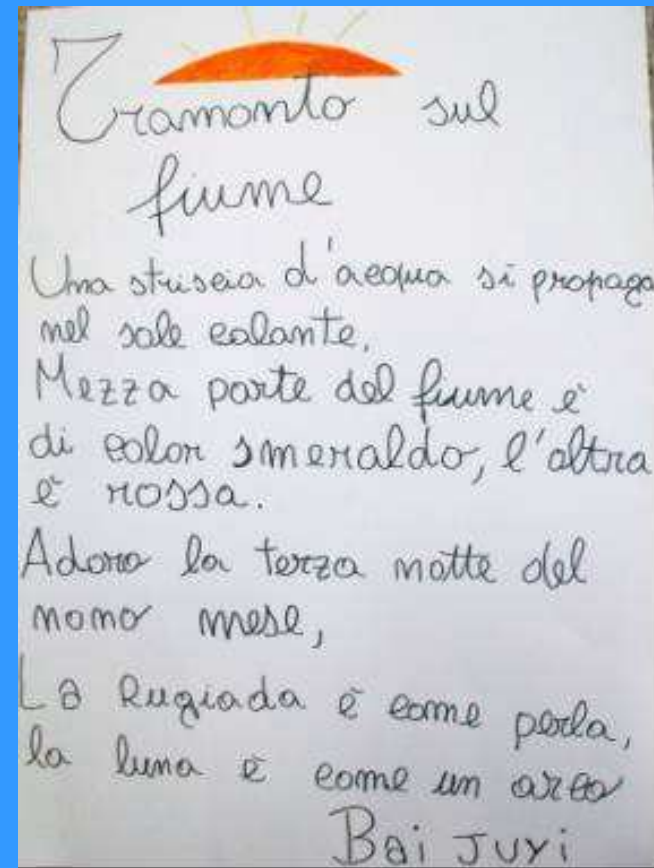 Tramonto sul
fiume
Una striscia d'acqua si propaga
nel sole calante.
Mezza parte del fiume è
di color smeraldo, l'altra
è rossa.
Adoro la terza notte del
nono mese,
La Rugiada è come perla,
la luna è come un arco
Bai Juyi